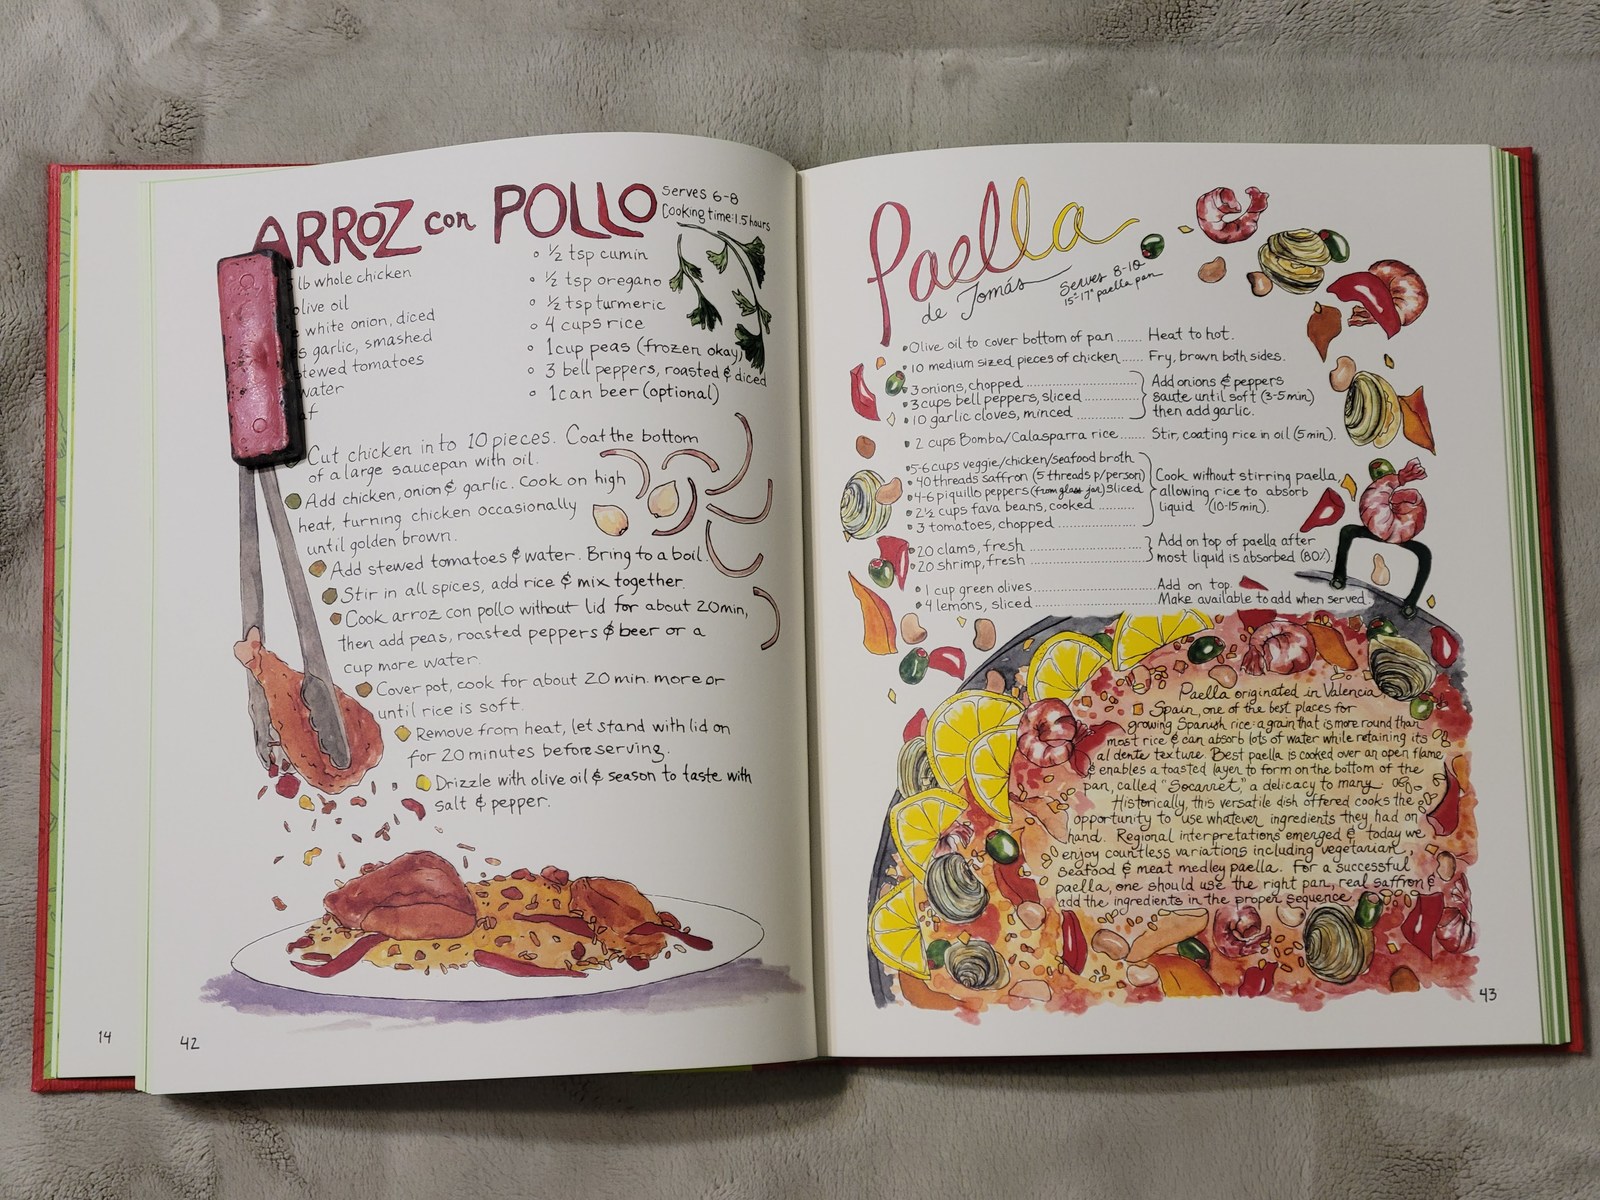 ARROZ con POLLO
Serves 6-8
Cooking time: 1.5 hours
lb whole chicken
olive oil
white onion, diced
garlic, smashed
stewed tomatoes
water
• ½ tsp cumin
• ½ tsp oregano
• ½ tsp turmeric
• 4 cups rice
• 1 cup peas (frozen okay)
• 3 bell peppers, roasted & diced
• 1 can beer (optional)
Cut chicken into 10 pieces. Coat the bottom
of a large saucepan with oil.
Add chicken, onion & garlic. Cook on high
heat, turning chicken occasionally
until golden brown.
Add stewed tomatoes & water. Bring to a boil.
Stir in all spices, add rice & mix together.
Cook arroz con pollo without lid for about 20 min,
then add peas, roasted peppers & beer or a
cup more water.
Cover pot, cook for about 20 min. more or
until rice is soft.
Remove from heat, let stand with lid on
for 20 minutes before serving.
Drizzle with olive oil & season to taste with
salt & pepper.
14
42
Paella
de Tomás
Serves 8-10
15"-17" paella pan
• Olive oil to cover bottom of pan ...... Heat to hot.
• 10 medium sized pieces of chicken ...... Fry, brown both sides.
• 3 onions, chopped ...... Add onions & peppers
• 3 cups bell peppers, sliced ...... saute until soft (3-5 min)
• 10 garlic cloves, minced ...... then add garlic.
• 2 cups Bomba/Calasparra rice ...... Stir, coating rice in oil (5 min).
• 5-6 cups veggie/chicken/seafood broth
• 40 threads saffron (5 threads p/person) Cook without stirring paella,
• 4-6 piquillo peppers (from glass jar) sliced allowing rice to absorb
• 2½ cups fava beans, cooked ...... liquid (10-15 min).
• 3 tomatoes, chopped ......
• 20 clams, fresh ...... Add on top of paella after
• 20 shrimp, fresh ...... most liquid is absorbed (80%).
• 1 cup green olives ...... Add on top.
• 4 lemons, sliced ...... Make available to add when served.
Paella originated in Valencia,
Spain, one of the best places for
growing Spanish rice: a grain that is more round than
most rice & can absorb lots of water while retaining its
al dente texture. Best paella is cooked over an open flame
& enables a toasted layer to form on the bottom of the
pan, called "Socarret," a delicacy to many.
Historically, this versatile dish offered cooks the
opportunity to use whatever ingredients they had on
hand. Regional interpretations emerged & today we
enjoy countless variations including vegetarian,
seafood & meat medley paella. For a successful
paella, one should use the right pan, real saffron &
add the ingredients in the proper sequence.
43